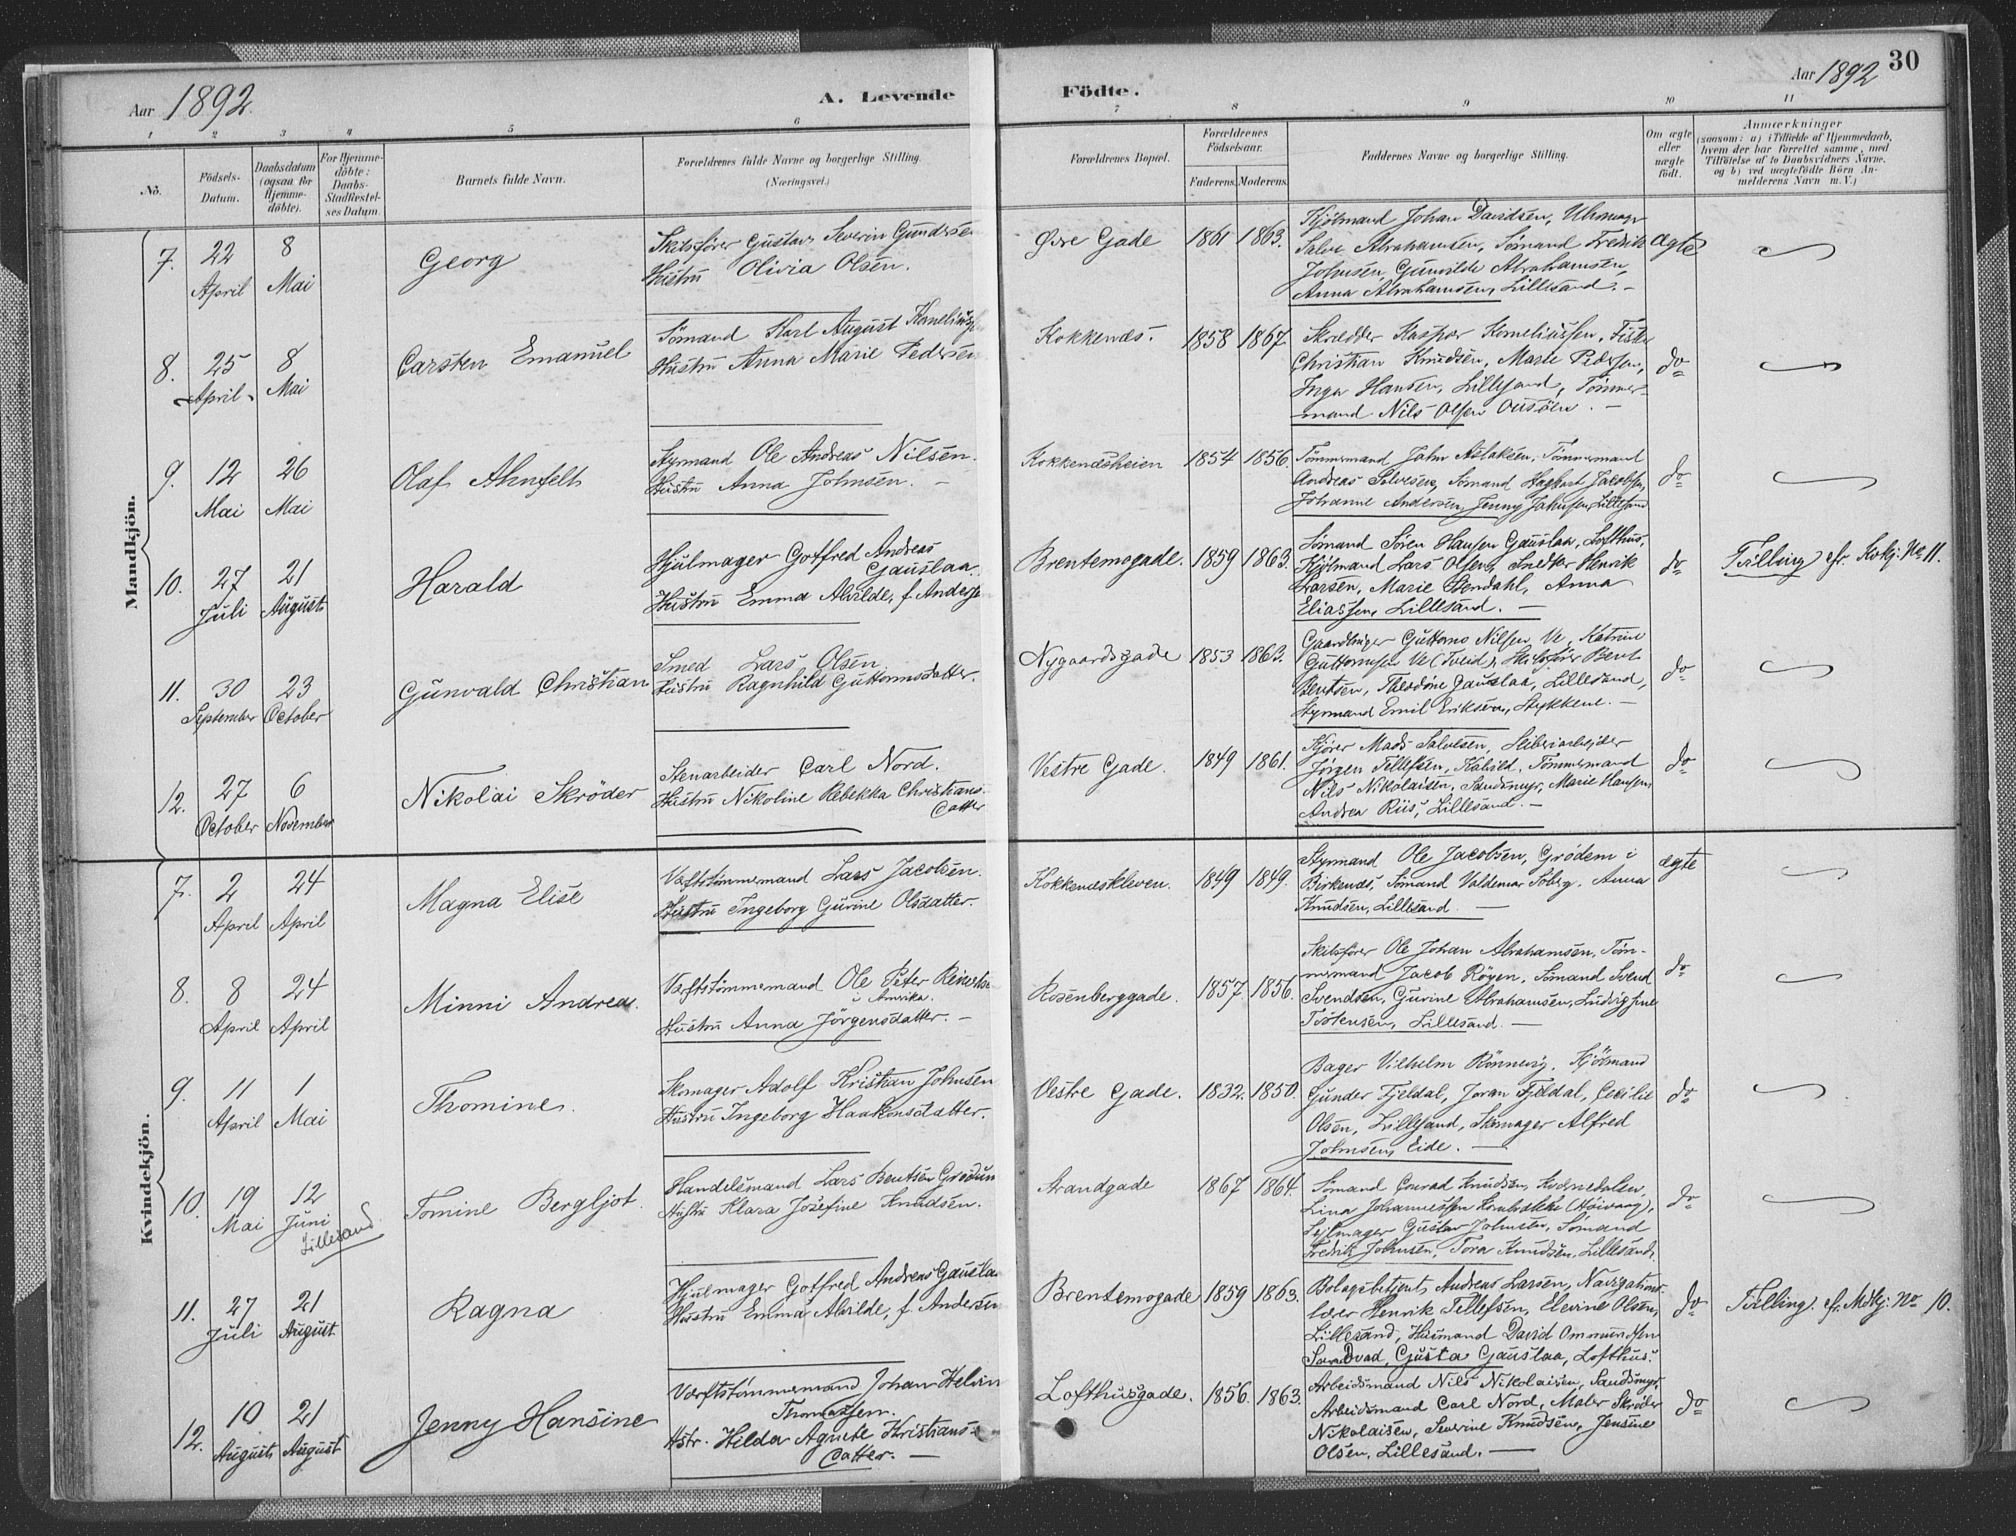 Aar 1892.
A. Levende
Födte.
Aar 1892
30
1 2 3 4 5 6 7 8 9 10 11
No.
Födsels-
Datum.
Daabsdatum
(ogsaa for
Hjemme-
döbte).
For Hjemme-
döbte:
Daabs-
Stadfæstel-
ses Datum.
Barnets fulde Navn.
Forældrenes fulde Navne og borgerlige Stilling.
(Næringsvei.)
Forældrenes Bopæl.
Forældrenes
Födselsaar.
Faderens. Moderens.
Faddernes Navne og borgerlige Stilling.
Om ægte
eller
uægte
födt.
Anmærkninger
(saasom: a) i Tilfælde af Hjemmedaab,
hvem der har forrettet samme, med
Tilföielse af to Daabsvidners Navne,
og b) ved uægtefödte Börn An-
melderens Navn m. V.)
Mandkjön.
7.
22
April
8
Mai
Georg
Skibsfører Gustav Severin Gundersen
Hustru Olivia Olsen.
Øvre Gade
1861 1863.
Kjölmand Johan Davidsen,
Salve Abrahamsen, Sömand Fredrik
Johnsen, Gunvilde Abrahamsen,
Anna Abrahamsen, Lillesand. -
ægte
8.
25
April
8
Mai
Carsten Emanuel
Sömand Karl August
Hustru Anna Marie Pedersen
Kokkenæs.
1858 1867.
Skrædder Kaspar Korneliussen, Fisker
Christian Knudsen, Marie Pedersen,
Inga Hansen, Lillesand, Tömmer-
mand Nils Olsen
do
9.
12
Mai
26
Mai
Olaf Ahnfelt
Styrmand Ole Andreas Nilsen.
Hustru Anna Johnsen. -
Kokkenæsheien
1854 1856.
Tömmermand John Aslaksen, Tömmermand
Andreas Salvesen, Sömand Hagbart Jacobsen,
Johanne Andersen, Jenny Johnsen, Lillesand
do
10.
27
Juli
21
August
Harald
Hjulmager Gotfred Andreas
Gauslaa.
Hustru Emma Alvilde, f. Andersen
Brentemogade.
1859 1863.
Sömand Sören Hansen Gauslaa, Lofthus,
Kjölmand Lars Olsen, Snedker Henrik
Larsen, Marie Stendahl, Anna
Eliassen, Lillesand. -
do
Tvilling cfr. Kvkj. No 11.
11.
30
September
23
October
Gunvald Christian
Smed Lars Olsen
Hustru Ragnhild Guttormsdatter.
Nygaardsgade
1853 1863.
Gaardbruger Guttorm Nilsen Ve, Katrine
Guttormsen Ve (Tveid), Skibsfører Bent
Bentsen, Theodine Gauslaa, Lillesand,
Styrmand Emil Eriksen, Stykkene. -
do
12.
27
October
6
November
Nikolai Skrøder
Stenarbeider Carl Nord.
Hustru Nikoline Rebekka Christians-
datter
Vestre Gade.
1849 1861.
Kjører Mads Salvesen,
Jörgen Tellefsen, Kalvild, Tömmermand
Nils Nikolaisen, Sandsmyr, Marie Hansen,
Andrea Riis, Lillesand. -
do
Kvindekjön.
7.
2
April
24
April
Magna Elise
Værftstömmermand Lars Jacobsen.
Hustru Ingeborg Gurine Olsdatter.
Kokkenæskleven.
1849 1849.
Styrmand Ole Jacobsen, Grødem i
Birkenæs, Sömand Valdemar Soberg, Anna
Knudsen, Lillesand. -
ægte
8.
8
April
24
April
Minni Andrea.
Værftstömmermand Ole Peter
i Amerika.
Hustru Anna Jörgensdatter. -
Rosenberggade.
1857 1856.
Skibsfører Ole Johan Abrahamsen, Töm-
mermand Jacob Röyen, Sömand Svend
Svendsen, Gurine Abrahamsen, Ludvigsine
Torstensen, Lillesand. -
do
9.
11
April
1
Mai
Thomine.
Skomager Adolf Kristian Johnsen
Hustru Ingeborg Haakonsdatter.
Vestre Gade.
1832. 1850.
Bager Vilhelm Rönnevig, Kjölmand
Gunder Fjeldal, Joran Fjeldal, Cecilie
Olsen, Lillesand, Skomager Alfred
Johnsen, Eide. -
do
10.
19
Mai
12
Juni
Lillesand
Tomine Bergljot.
Handelsmand Lars Bentsen Grödum
Hustru Klara Josefine Knudsen.
Strandgade
1867 1864.
Sömand Conrad Knudsen,
Lina Johannessen
Seilmager Gustav Johnsen, Sömand
Fredrik Johnsen, Tora Knudsen, Lillesand.
do
11.
27
Juli
21
August
Ragna
Hjulmager Gotfred Andreas Gauslaa
Hustru Emma Alvilde, f. Andersen
Brentemogade
1859 1863.
Bolagsbetjent Andreas Larsen, Navigations-
lærer Henrik Tellefsen, Elevine Olsen,
Lillesand, Husmand David Ommundsen
Gusta Gauslaa, Lofthus.
do
Tvilling. cfr. Mdkj. No 10.
12.
10
August
21
August
Jenny Hansine
Værftstömmermand Johan
Thomassen.
Hstr. Hilda Agnete Kristians-
datter. -
Lofthusgade.
1856. 1863.
Arbeidsmand Nils Nikolaisen, Sandsmyr,
Arbeidsmand Carl Nord, Maler Skrøder
Nikolaisen, Severine Knudsen, Jensine
Olsen, Lillesand. -
do